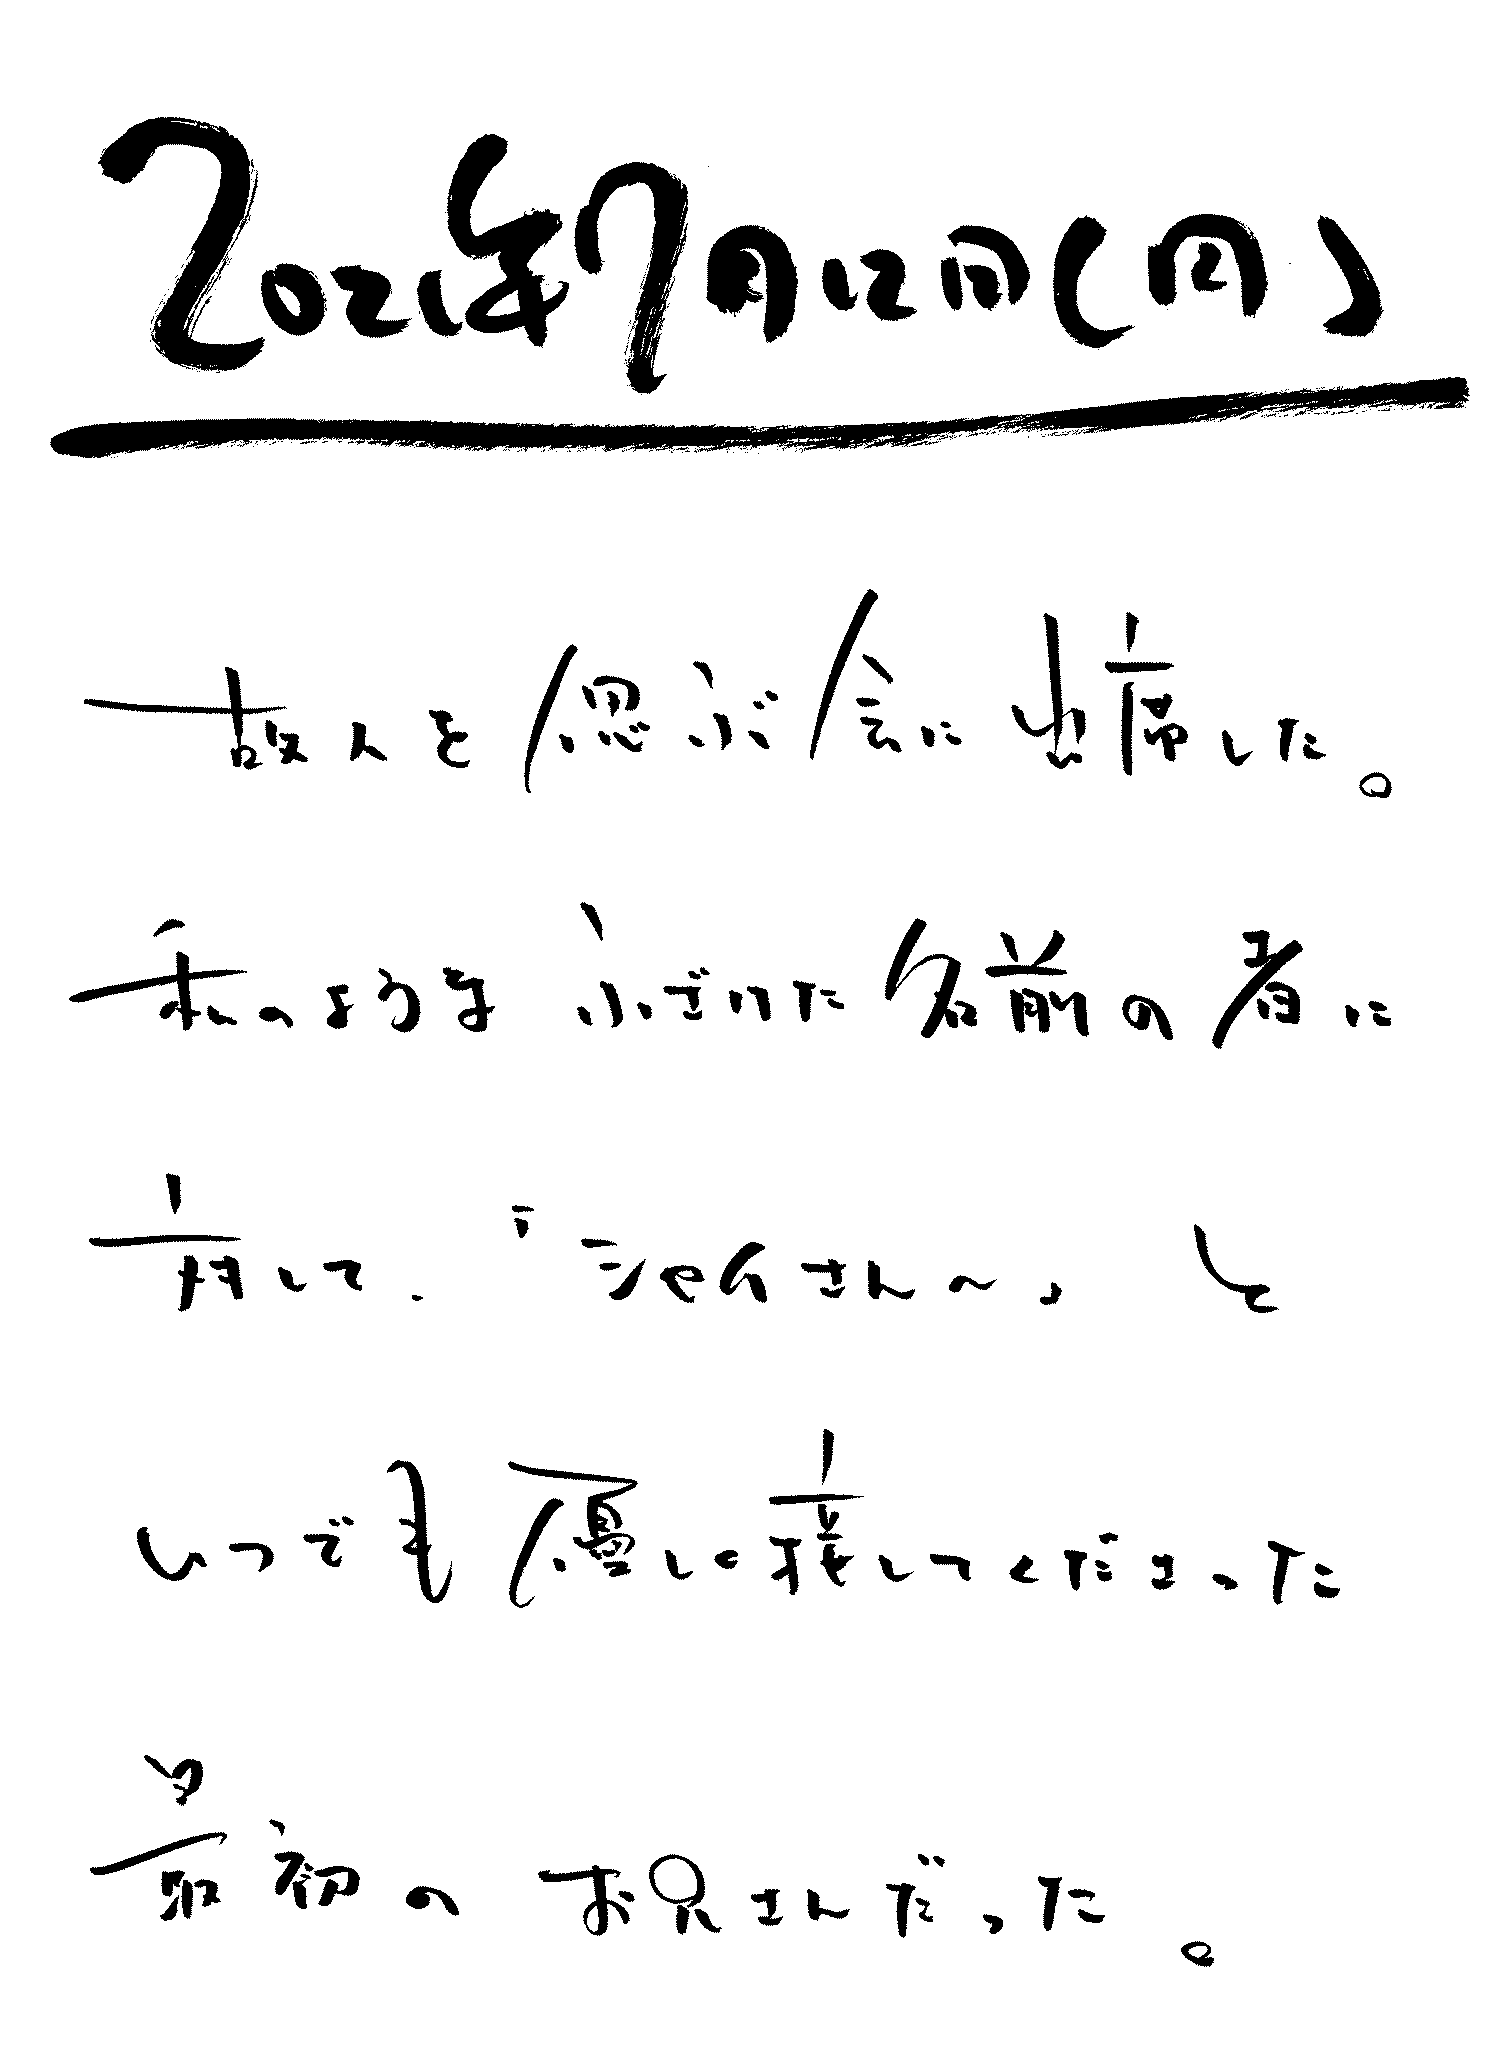 2021年7月12日(月)
故人を偲ぶ会に出席した。
私のようなふざけた名前の者に
対して、「シャムさん〜」と
いつでも優しく接してくださった
最初のお兄さんだった。